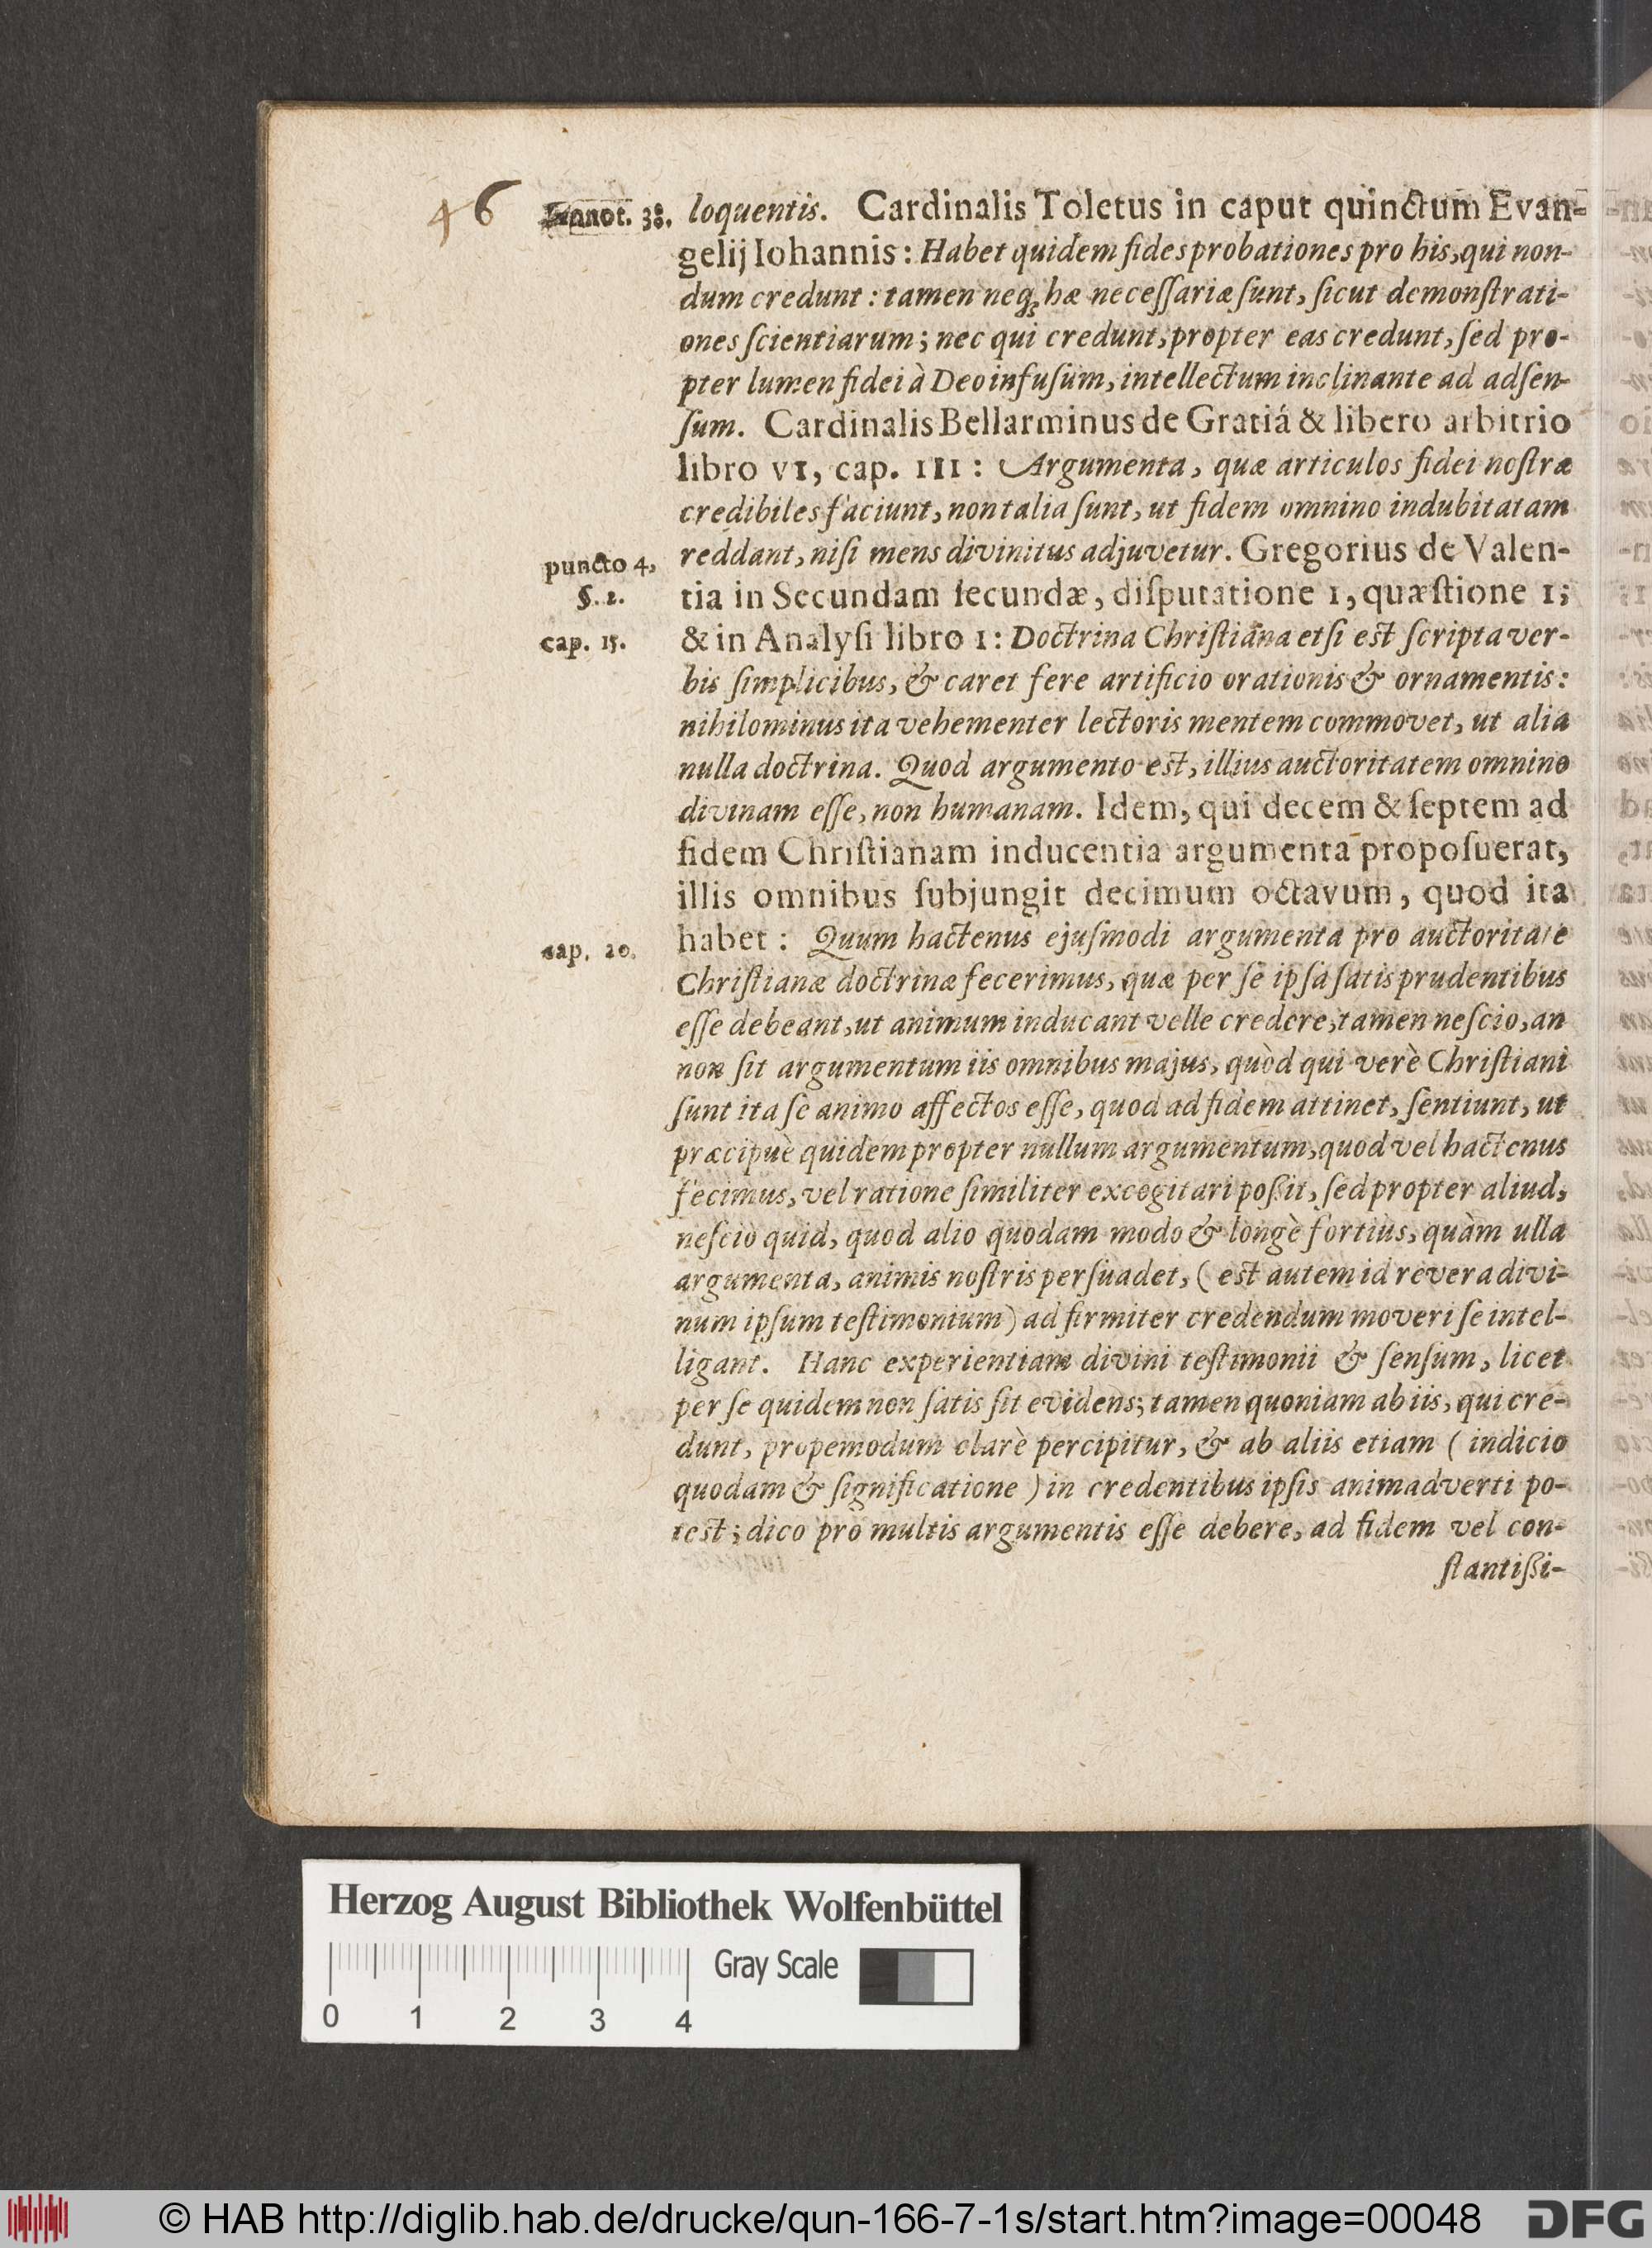 46
annot. 38.
loquentis. Cardinalis Toletus in caput quinctum Evan-
gelij Iohannis: Habet quidem fides probationes pro his, qui non-
dum credunt: tamen neq; hæ neceſſariæ ſunt, ſicut demonſtrati-
ones ſcientiarum; nec qui credunt, propter eas credunt, ſed pro-
pter lumen fidei à Deo infuſum, intellectum inclinante ad adſen-
ſum. Cardinalis Bellarminus de Gratiá & libero arbitrio
libro VI, cap. III: Argumenta, quæ articulos fidei noſtræ
credibiles faciunt, non talia ſunt, ut fidem omnino indubitatam
reddant, niſi mens divinitus adjuvetur. Gregorius de Valen-
puncto 4,
§. 2.
tia in Secundam ſecundæ, diſputatione 1, quæſtione 1;
cap. 15.
& in Analyſi libro 1: Doctrina Chriſtiana etſi eſt ſcripta ver-
bis ſimplicibus, & caret fere artificio orationis & ornamentis:
nihilominus ita vehementer lectoris mentem commovet, ut alia
nulla doctrina. Quod argumento eſt, illius auctoritatem omnino
divinam eſſe, non humanam. Idem, qui decem & ſeptem ad
fidem Chriſtianam inducentia argumenta propoſuerat,
illis omnibus ſubjungit decimum octavum, quod ita
cap. 20.
habet: Quum hactenus ejuſmodi argumenta pro auctoritate
Chriſtianæ doctrinæ fecerimus, quæ per ſe ipſa ſatis prudentibus
eſſe debeant, ut animum inducant velle credere, tamen neſcio, an
non ſit argumentum iis omnibus majus, quòd qui verè Chriſtiani
ſunt ita ſe animo affectos eſſe, quod ad fidem attinet, ſentiunt, ut
præcipuè quidem propter nullum argumentum, quod vel hactenus
fecimus, vel ratione ſimiliter excogitari poßit, ſed propter aliud,
neſcio quid, quod alio quodam modo & longè fortiùs, quàm ulla
argumenta, animis noſtris perſuadet, (eſt autem id revera divi-
num ipſum teſtimonium) ad firmiter credendum moveri ſe intel-
ligant. Hanc experientiam divini teſtimonii & ſenſum, licet
per ſe quidem non ſatis ſit evidens; tamen quoniam ab iis, qui cre-
dunt, propemodum clarè percipitur, & ab aliis etiam (indicio
quodam & ſignificatione) in credentibus ipſis animadverti po-
teſt; dico pro multis argumentis eſſe debere, ad fidem vel con-
ſtantißi-
Herzog August Bibliothek Wolfenbüttel
0 1 2 3 4
Gray Scale
© HAB http://diglib.hab.de/drucke/qun-166-7-1s/start.htm?image=00048
DFG